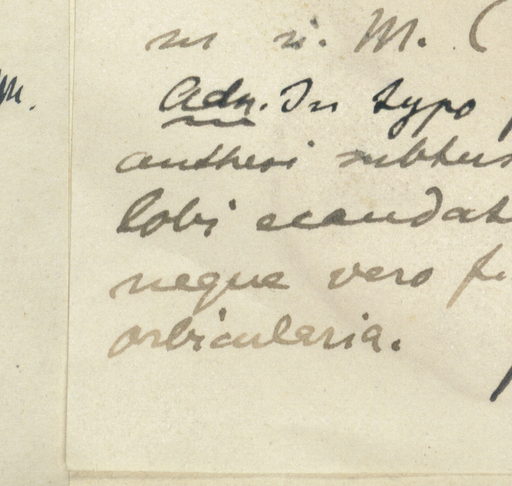 m.
m. M. (
Adn. In typo
anthesi subtus
lobi ecaudat
neque vero f
orbicularia.